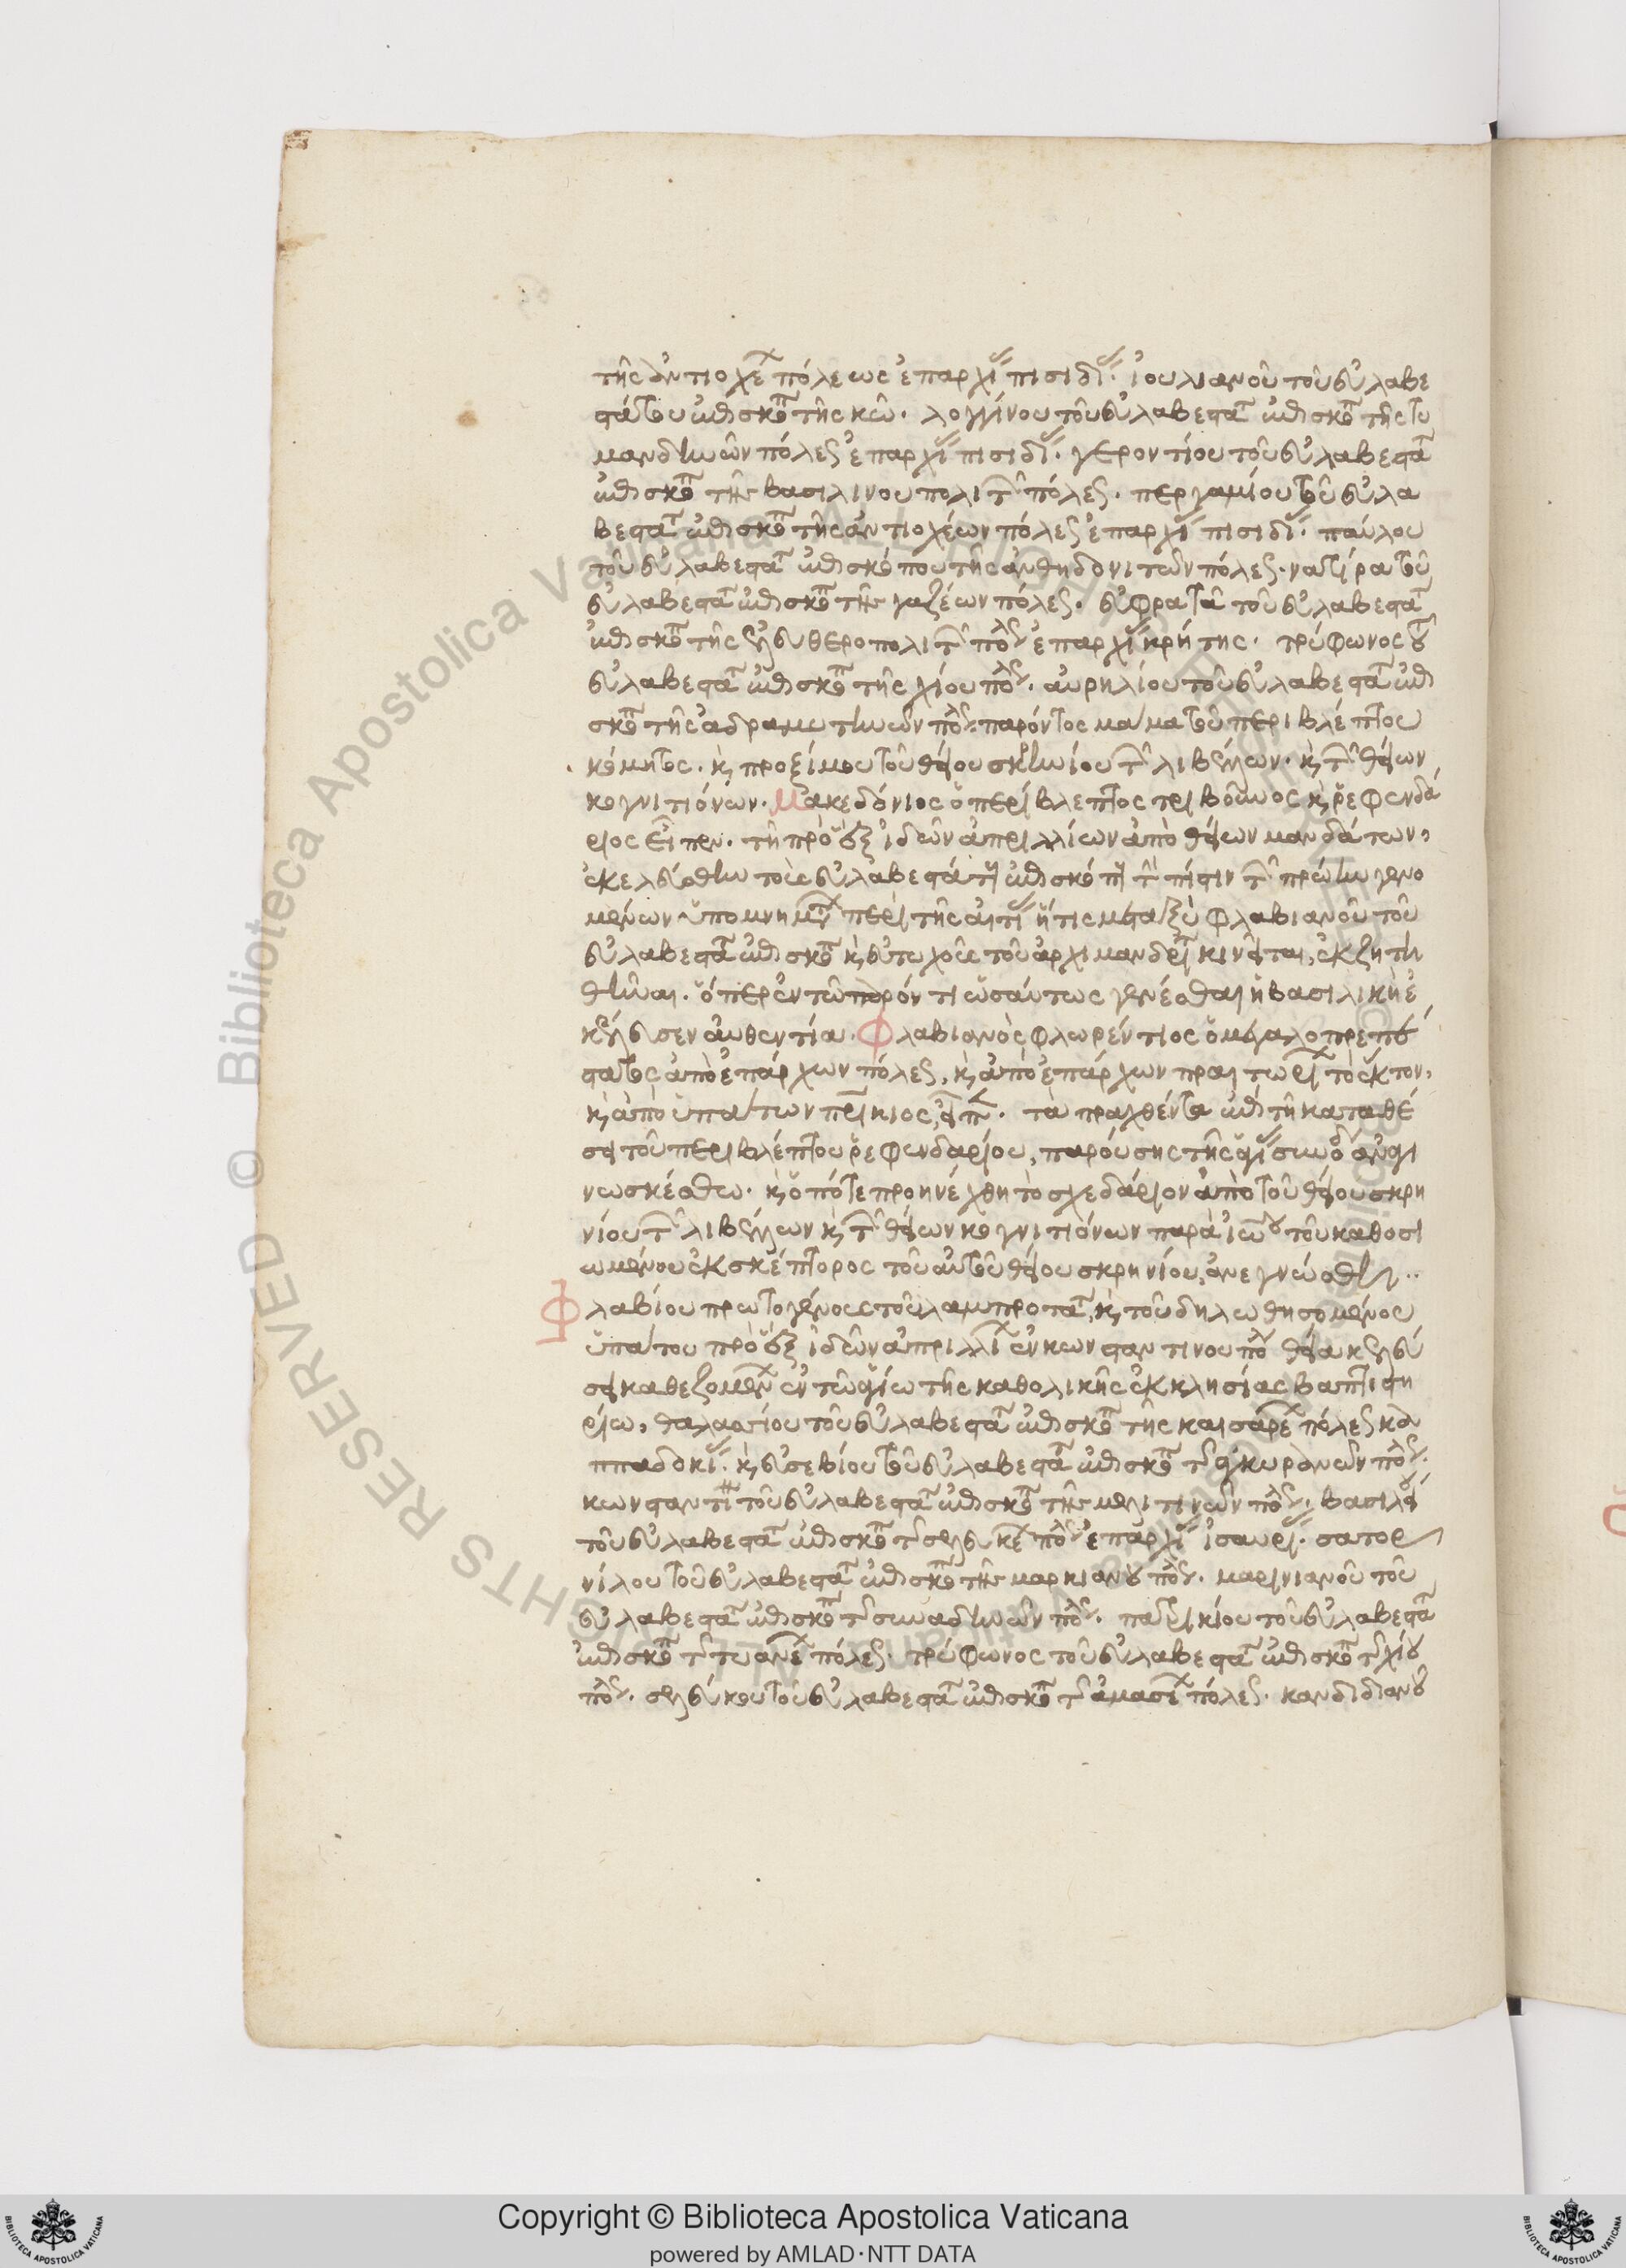 τῆς ἀντιοχε πόλεως ἐπαρχί πισιδί. ἰουλιανοῦ τοῦ εὐλαβε
στάτου ἐπισκο τῆς κῶ. λογγίνου τοῦ εὐλαβεστα ἐπισκο τῆς τυ
μανδηνῶν πόλεως ἐπαρχί πισιδί. γεροντίου τοῦ εὐλαβεστα
ἐπισκο τῆς βασιλινουπολιτ πόλεως. περγαμίου τοῦ εὐλα
βεστα ἐπισκο τῆς ἀντιοχέων πόλεως ἐπαρχί πισιδί. παύλου
τοῦ εὐλαβεστα ἐπισκόπου τῆς ἀνθηδονιτῶν πόλεως. νατίρα τοῦ
εὐλαβεστα ἐπισκο τῆς γαζέων πόλεως. εὐφρατᾶ τοῦ εὐλαβεστα
ἐπισκο τῆς ἐλευθεροπολιτ πολ ἐπαρχί κρήτης. τρύφωνος τοῦ
εὐλαβεστα ἐπισκο τῆς χίου πολ. αὐρηλίου τοῦ εὐλαβεστα ἐπι
σκο τῆς ἀδραμυτηνῶν πολ. παρόντος μάμα τοῦ περιβλέπτου
κόμητος. κ προξίμου τοῦ θείου σκρηνίου τ λιβέλλων. κ τ θείων
κογνιτιόνων. Μακεδόνιος ὁ περίβλεπτος τριβοῦνος κ ῥεφενδά
ριος εἶπεν. τῇ πρὸ ἓξ ἰδῶν ἀπριλλίων ἀπὸ θείων μανδάτων,
ἐκελεύσθην τοῖς εὐλαβεστάτοις ἐπισκόποις τ πίστιν τ πρώην γενο
μένων ὑπομνημτ περὶ τῆς αἰτί ἥτις μεταξὺ φλαβιανοῦ τοῦ
εὐλαβεστα ἐπισκο κ εὐτυχοῦς τοῦ ἀρχιμανδρι κινεῖται, ἐκζητη
θῆναι. ὅπερ ἐν τῷ παρόντι ὡσαύτως γενέσθαι ἡ βασιλικὴ ἐ
κέλευσεν αὐθεντία. Φλαβιανὸς φλωρέντιος ὁ μεγαλοπρεπέ
στατος ἀπὸ ἐπάρχων πόλεως, κ ἀπὸ ἐπάρχων πραιτωρί τὸ ἕκτον,
κ ἀπὸ ὑπάτων πρίκιος, εἶπ. τὰ πραχθέντα ἐπὶ τῇ καταθέ
σει τοῦ περιβλέπτου ῥεφενδαρίου, παρούσης τῆς ἁγί συνόδ ἀναγι
νωσκέσθω. κ ὁπότε προηνέχθη τὸ σχεδάριον ἀπὸ τοῦ θείου σκρη
νίου τ λιβέλλων κ τ θείων κογνιτιόνων παρὰ ἰωου τοῦ καθοσι
ωμένου ἐκσκέπτορος τοῦ αὐτοῦ θείου σκρηνίου, ἀνεγνώσθη..
Φλαβίου πρωτογένους τοῦ λαμπροτα, κ τοῦ δηλωθησομένου
ὑπάτου πρὸ ἓξ ἰδῶν ἀπριλλί ἐν κωνσταντινουπο θείᾳ κελεύ
σει καθεζομεν ἐν τῷ ἁγίῳ τῆς καθολικῆς ἐκκλησίας βαπτιστη
ρίῳ, θαλασσίου τοῦ εὐλαβεστα ἐπισκο τῆς καισαρε πόλεως κα
ππαδοκί. κ εὐσεβίου τοῦ εὐλαβεστα ἐπισκο τ ἀγκυρανῶν πολ.
κωνσταντι τοῦ εὐλαβεστα ἐπισκο τῆς μελιτινῶν πολ. βασιλείου
τοῦ εὐλαβεστα ἐπισκο τ σελευκε πολ ἐπαρχί ἰσαυρί. σατορ
νίλου τοῦ εὐλαβεστα ἐπισκο τῆς μαρκιανου πολ. μαρινιανοῦ τοῦ
εὐλαβεστα ἐπισκο τ συναδηνῶν πολ. πατρικίου τοῦ εὐλαβεστα
ἐπισκο τ τυανε πόλεως. τρύφωνος τοῦ εὐλαβεστα ἐπισκο τ χίου
πολ. σελεύκου τοῦ εὐλαβεστα ἐπισκο τ ἀμασε πόλεως. κανδιδιανου
© Biblioteca Apostolica Vaticana
ALL RIGHTS RESERVED
Copyright © Biblioteca Apostolica Vaticana
powered by AMLAD·NTT DATA
BIBLIOTECA APOSTOLICA VATICANA
BIBLIOTECA APOSTOLICA VATICANA